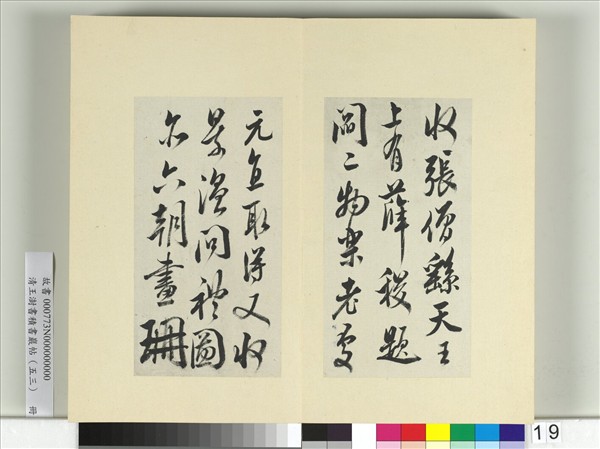 收張僧繇天王
上有薛稷題
閻二物樂老處
元直取得又收
景溫問禮圖
亦六朝畫珊
故書 000773N000000000
清王澍書積書巖帖（五三） 冊
19